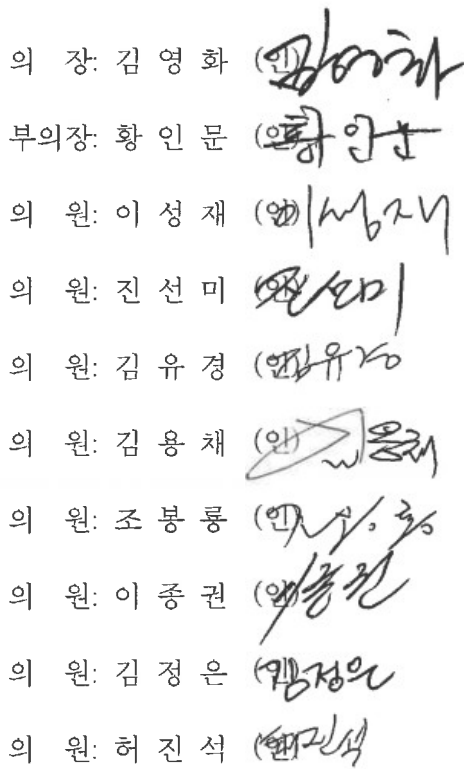 의 장: 김 영 화 (인) 김영화
부의장: 황 인 문 (인) 황인문
의 원: 이 성 재 (인) 이성재
의 원: 진 선 미 (인) 진선미
의 원: 김 유 경 (인) 김유경
의 원: 김 용 채 (인) 김용채
의 원: 조 봉 룡 (인)
의 원: 이 종 권 (인) 이종권
의 원: 김 정 은 (인) 김정은
의 원: 허 진 석 (인) 허진석